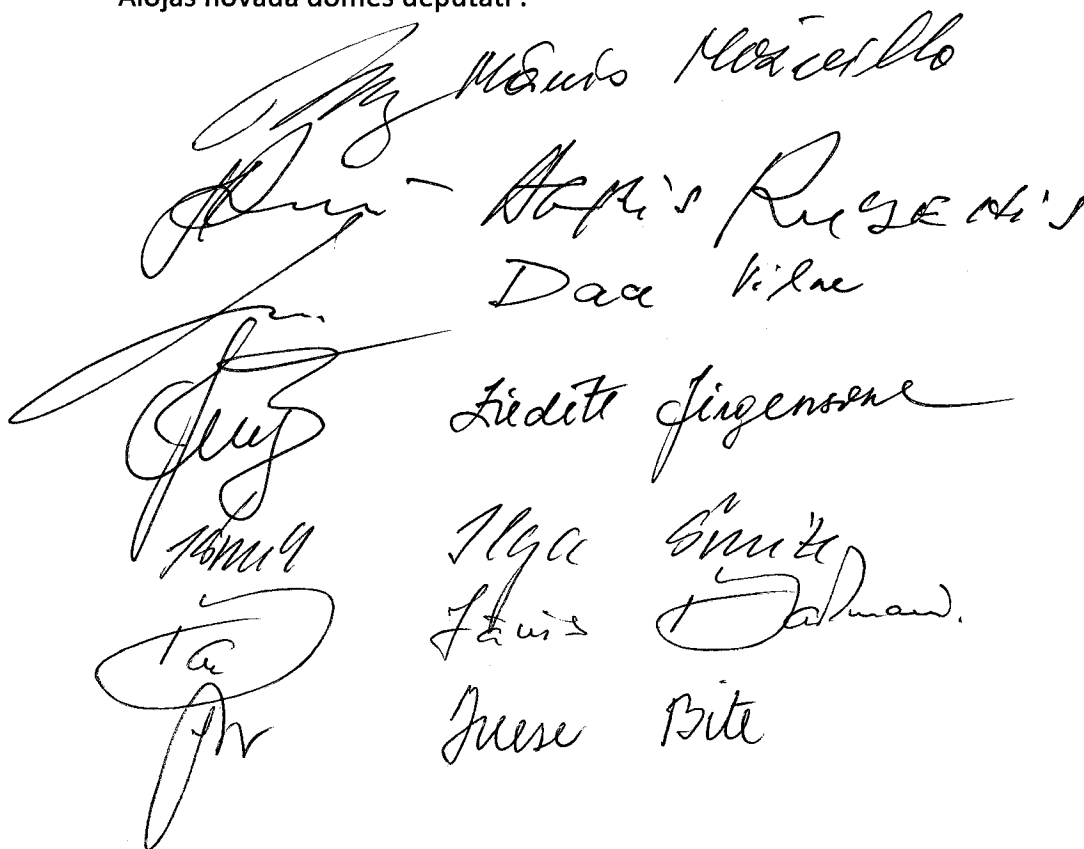 Alojas novada domes deputāti :
Māris Možvillo
Rugenis
Daa Vilne
Ziedīte Jirgensone
Ilga Šmite
Jānis
Inese Bite